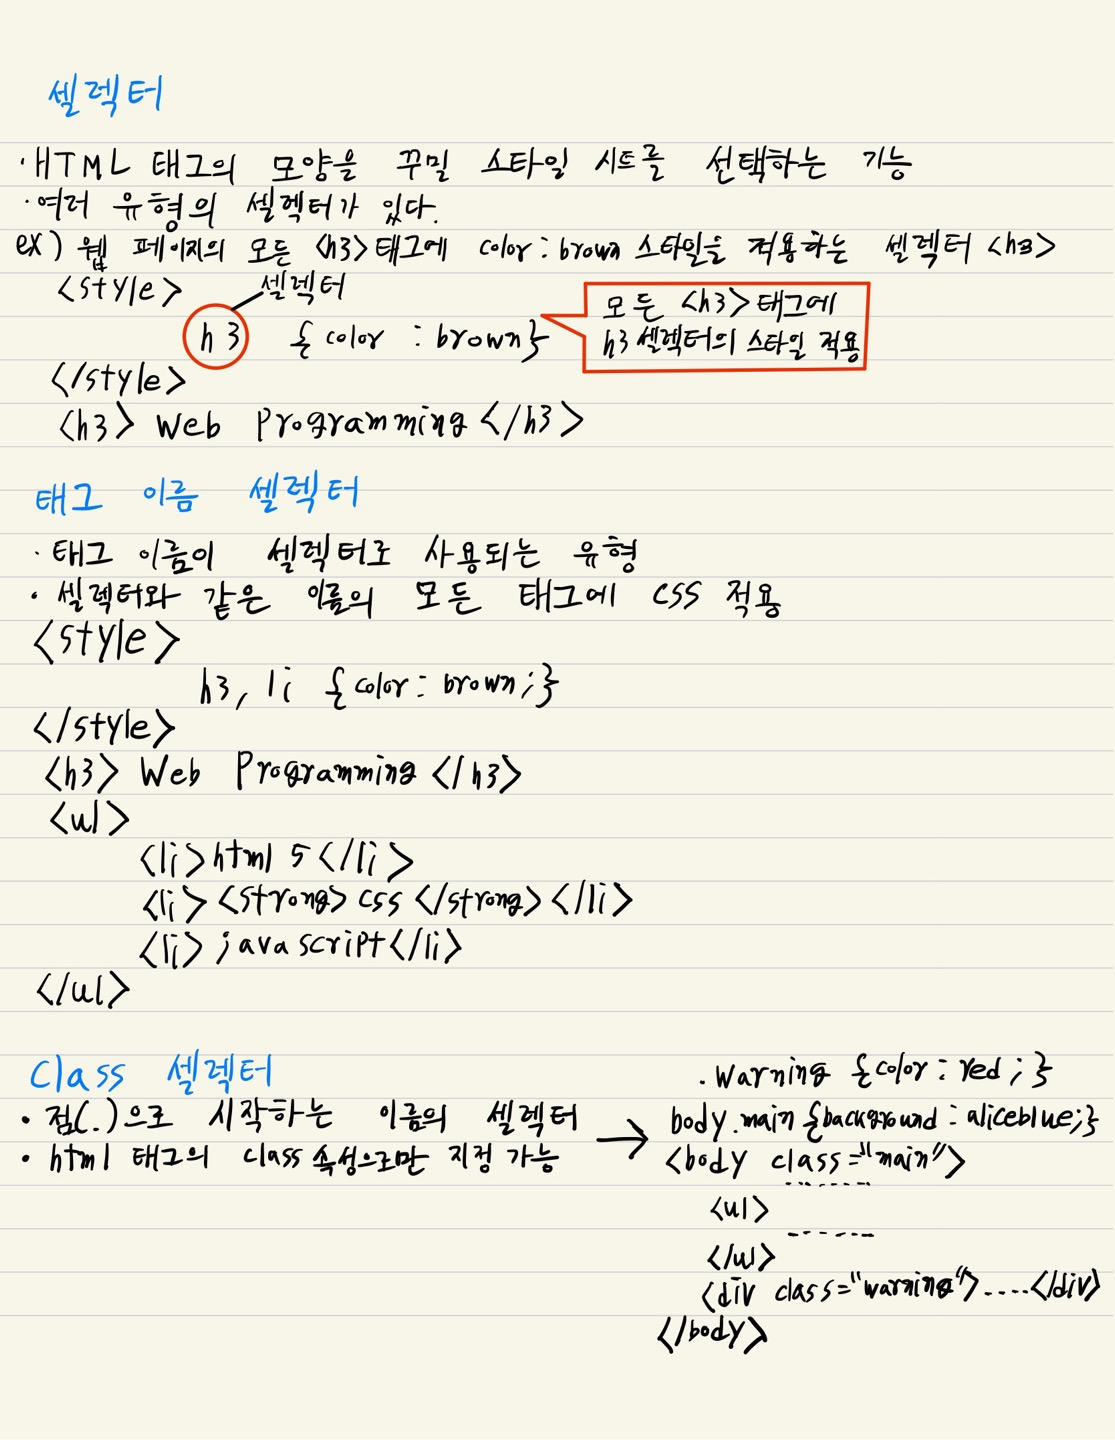 셀렉터
·HTML 태그의 모양을 꾸밀 스타일 시트를 선택하는 기능
·여러 유형의 셀렉터가 있다.
ex) 웹 페이지의 모든 <h3>태그에 color:brown 스타일을 적용하는 셀렉터 <h3>
<style> 셀렉터
h3 {color : brown}
모든 <h3>태그에
h3 셀렉터의 스타일 적용
</style>
<h3> Web Programming </h3>
태그 이름 셀렉터
· 태그 이름이 셀렉터로 사용되는 유형
· 셀렉터와 같은 이름의 모든 태그에 css 적용
<style>
h3, li {color: brown;}
</style>
<h3> Web Programming </h3>
<ul>
<li>html 5</li>
<li><strong>css</strong></li>
<li>javascript</li>
</ul>
Class 셀렉터
· 점(.)으로 시작하는 이름의 셀렉터 →
· html 태그의 class 속성으로만 지정 가능
.Warning {color : red ; }
body.main {background : aliceblue;}
<body class="main">
-------
<ul>
------
</ul>
<div class="warning">.....</div>
</body>